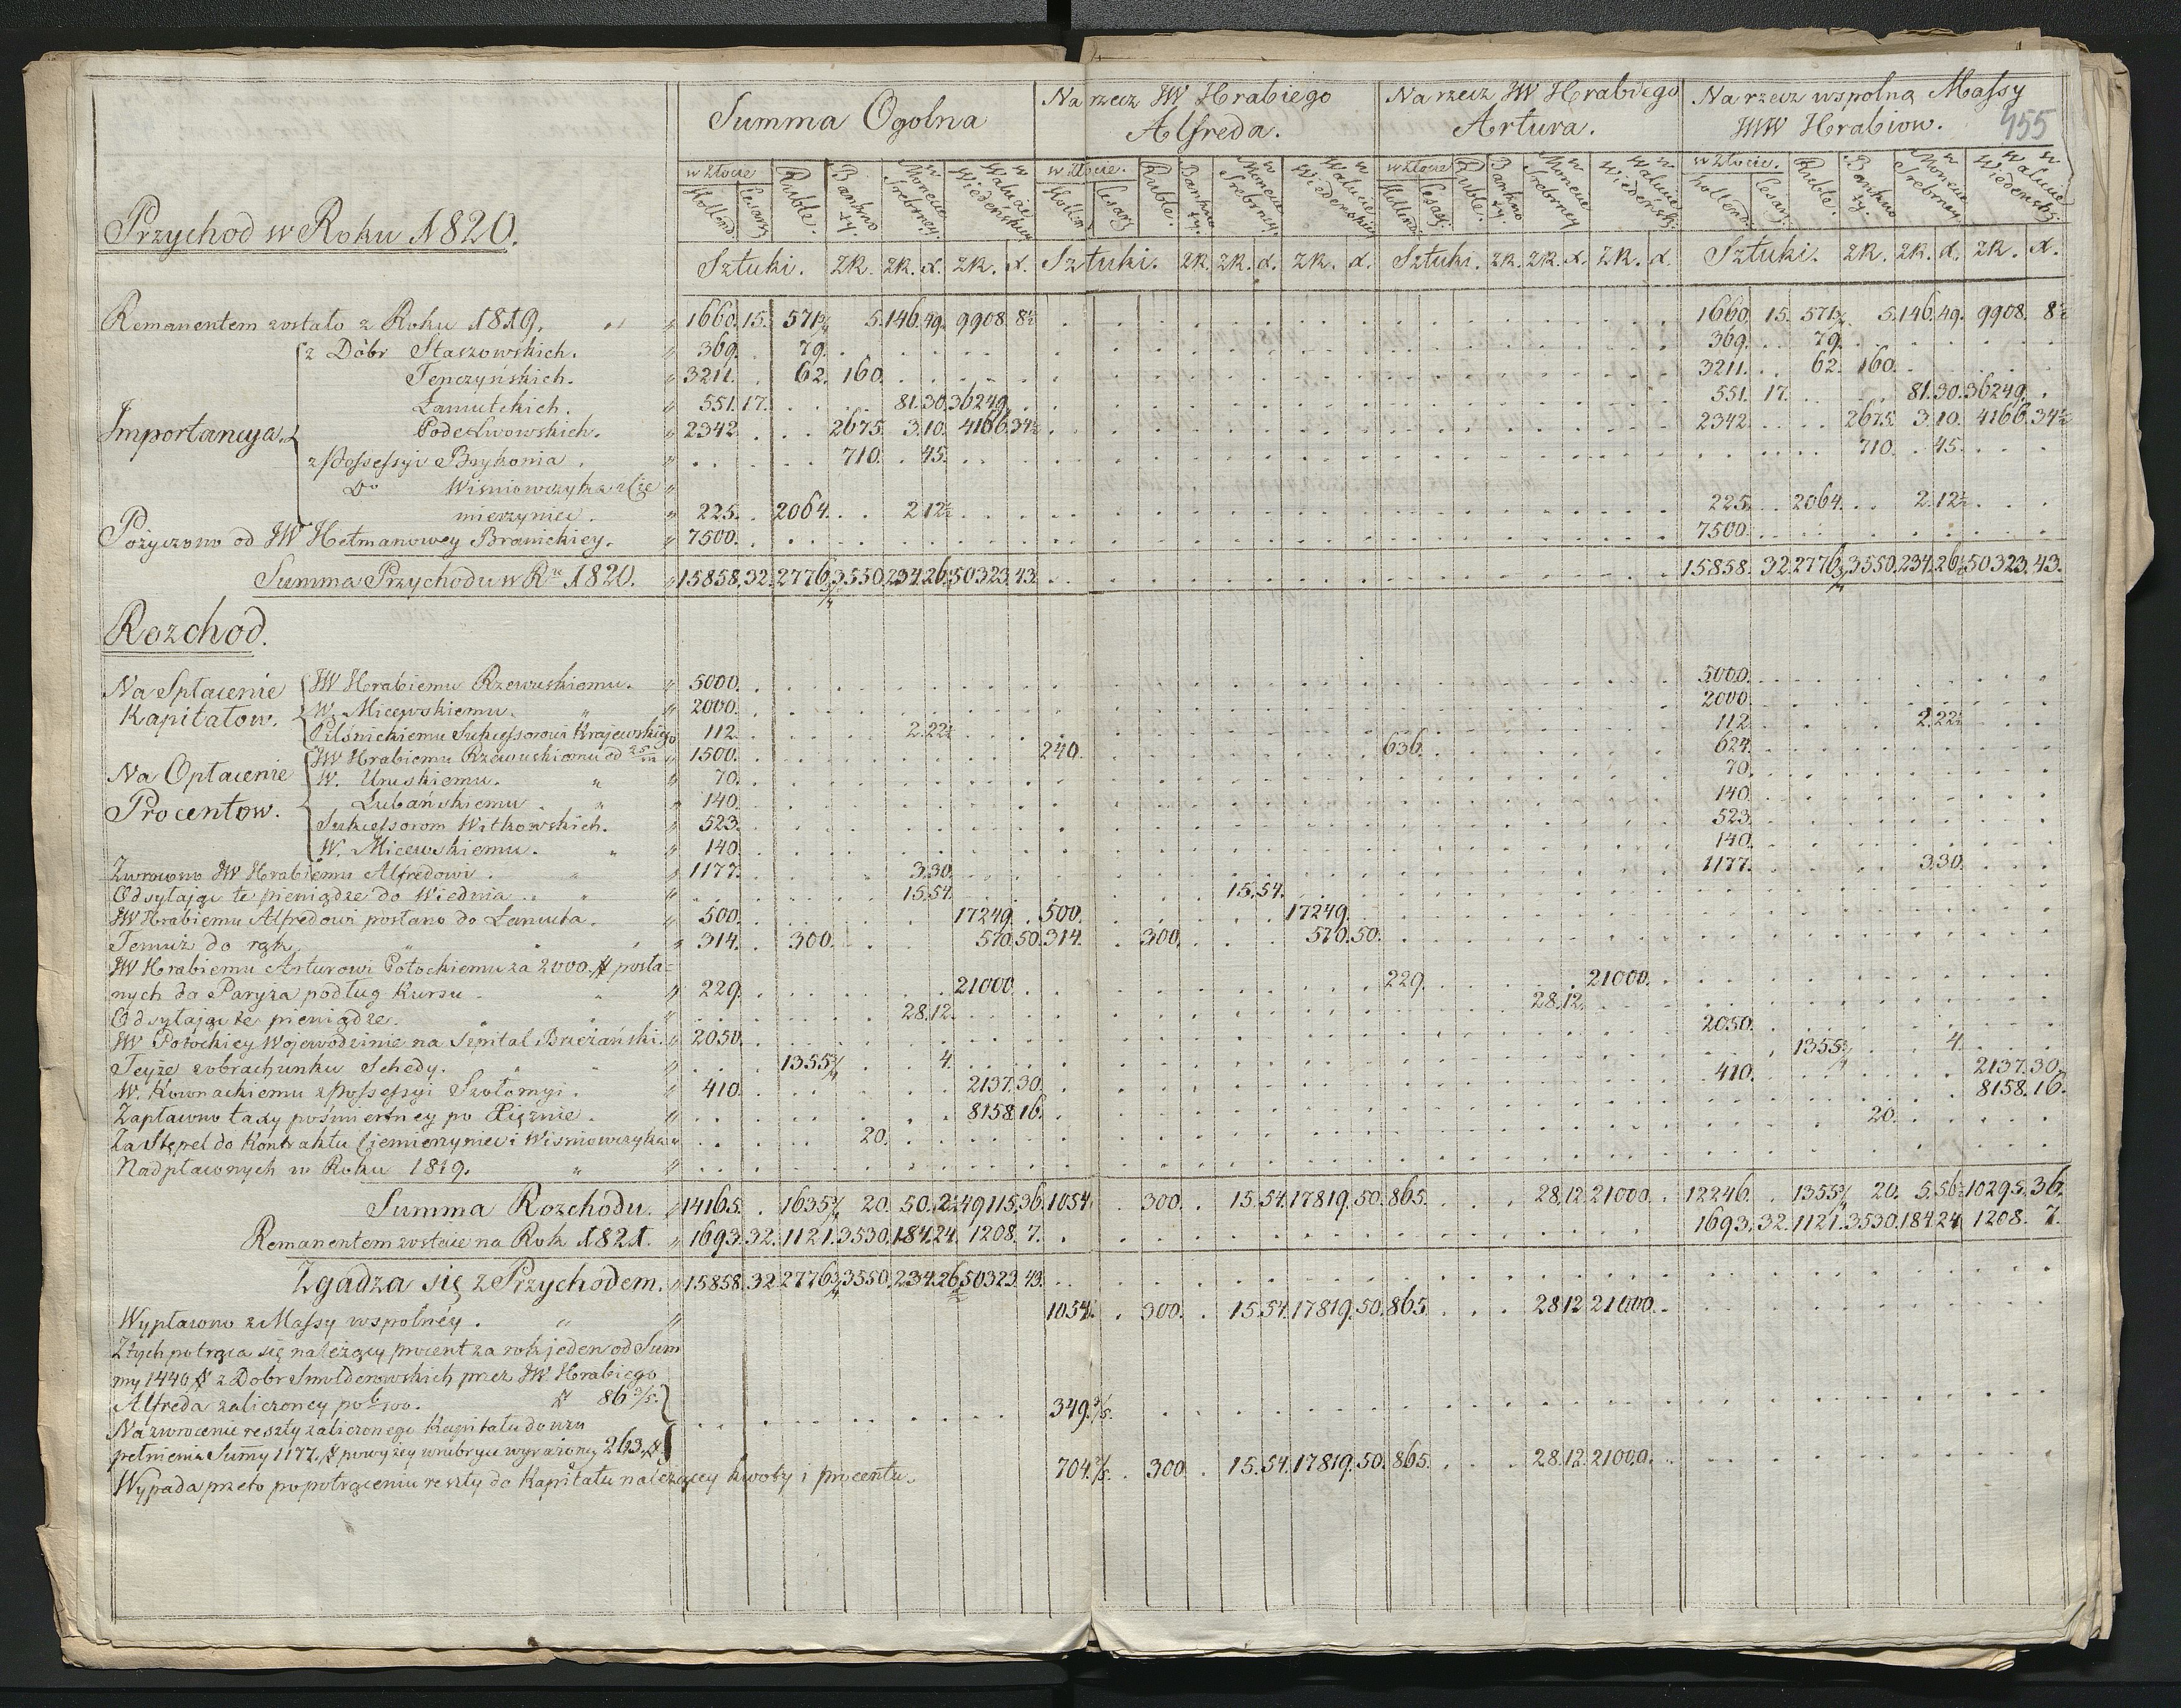 Summa Ogolna Na rzecz JW Hrabiego Alfreda. Na rzecz JW Hrabiego Artura. Na rzecz wspolną Massy JWW Hrabiow. 455
w Złocie Ruble. Banknoty. w Monecie Srebrney. w Walucie Wiedeńskiey w Złocie. Ruble. Banknoty. w Monecie Srebrney. w Walucie Wiedeńskiey w Złocie Ruble. Banknoty. w Monecie Srebrney w Walucie Wiedeńskiey w Złocie. Ruble. Banknoty. w Monecie Srebrney. w Walucie Wiedeńskiey
Holland. Cesarz. Holland. Cesarz. Holland. Cesarz. Holland. Cesarz.
Przychod w Roku 1820.
Sztuki. ZR. ZR. x. ZR. x. Sztuki. ZR. ZR. x. ZR. x. Sztuki. ZR. ZR. x. ZR. x. Sztuki. ZR. ZR. x. ZR. x.
Remanentem zostało z Roku 1819. 1660. 15. 571 3/4 5. 146. 49. 9908. 8 1/2 1660. 15. 571 3/4 5. 146. 49. 9908. 8 1/2
z Dóbr Staszowskich. 369. 79. 369. 79.
Tenczyńskich. 3211. 62. 160. 3211. 62. 160.
Importancya. Łancutskich. 551. 17. 81. 30. 36249. 551. 17. 81. 30. 36249.
Pode Lwowskich. 2342. 2675. 3. 10. 4166. 34 1/2 2342. 2675. 3. 10. 4166. 34 1/2
z Possessyi Brykonia. 710. 45. 710. 45.
Do Wisniowczyka i Cie
mierzyniec. 225. 2064. 2. 12 1/2 225. 2064. 2. 12 1/2
Pożyczono od JW Hetmanowey Branickiey. 7500. 7500.
Summa Przychodu w Rku 1820. 15858. 32. 2776 3/4 3550. 234. 26 1/2 50323. 43. 15858. 32. 2776 3/4 3550. 234. 26 1/2 50323. 43.
Rozchod.
Na Spłacenie JW Hrabiemu Rzewuskiemu. 5000. 5000.
Kapitałow. W. Micewskiemu. 2000. 2000.
Pilśnickiemu Sukcessorowi Krajewskiego 112. 2. 22 1/2 112. 2. 22 1/2
JW Hrabiemu Rzewuskiemu od 25/m 1500. 240. 636. 624.
Na Opłacenie W. Uruskiemu. 70. 70.
Procentow. Lubańskiemu. 140. 140.
Sukcessorom Witkowskich. 523. 523.
W. Micewskiemu. 140. 140.
Zwrocono JW Hrabiemu Alfredowi. 1177. 3. 30. 1177. 3. 30.
Odsyłając te pieniądze do Wiednia. 15. 54. 15. 54.
JW Hrabiemu Alfredowi posłano do Łancuta. 500. 17249. 500. 17249.
Temuż do rąk. 314. 300. 570. 50. 314. 300. 570. 50.
JW Hrabiemu Arturowi Potockiemu za 2000 # posła=
nych do Paryża podług Kursu. 229. 21000. 229. 21000.
Odsyłając te pieniądze. 28. 12. 28. 12.
JW Potockiey Wojewodzinie na Szpital Brzeżański. 2050. 2050.
Teyże z obrachunku Schedy. 1355 3/4 4. 1355 3/4 4.
W. Kownackiemu z Possessyi Szołomyi. 410. 2137. 30. 410. 2137. 30.
Zapłacono taxy pośmiertney po Xiężnie. 8158. 16. 8158. 16.
Za Stępel do Kontraktu Ciemierzyniec i Wisniowczyka 20. 20.
Nadpłaconych w Roku 1819.
Summa Rozchodu. 14165. 1635 3/4 20. 50. 2 1/2 49115. 36. 1054. 300. 15. 54. 17819. 50. 865. 28. 12. 21000. 12246. 1355 3/4 20. 5. 56 1/2 10295. 36.
Remanentem zostaie na Rok 1821. 1693. 32. 1121. 3530. 184. 24. 1208. 7. 1693. 32. 1121. 3530. 184. 24. 1208. 7.
Zgadza się z Przychodem. 15858. 32. 2776 3/4 3550. 234. 26 1/2 50323. 43.
Wypłacono z Massy wspolnéy. 1054. 300. 15. 54. 17819. 50. 865. 28. 12. 21000.
Z tych potrąca się należący procent za rok jeden od Sum
my 1440 # z Dobr Smolderowskich przez JW. Hrabiego
Alfreda zaliczoney po 6/100. # 86 2/5. 349 2/5.
Na zwrocenie reszty zaliczonego Kapitału do uzu
pełnienia Summy 1177 # powyżey w rubryce wyrażoney 263 #
Wypada przeto po potrąceniu reszty do Kapitału należącey kwoty i procentu. 704 3/5. 300. 15. 54. 17819. 50. 865. 28. 12. 21000.